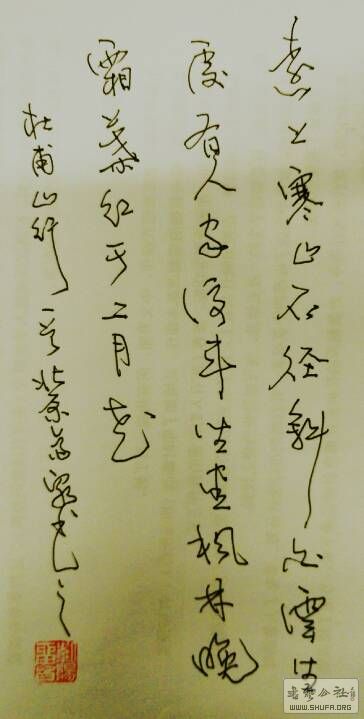 远上寒山石径斜白雲生
处有人家停车坐爱枫林晚
霜葉红于二月花
杜甫山行一首北京书之
公社
WWW.SHUFA.ORG